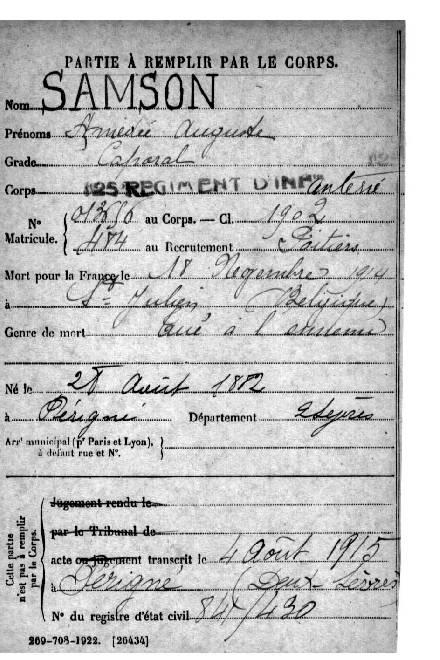 PARTIE À REMPLIR PAR LE CORPS.
Nom SAMSON
Prénoms Amédée Auguste
Grade Caporal
Corps 125 REGIMENT D'INFanterie
Nº Matricule. { au Corps. — Cl. 1902
474 au Recrutement Poitiers
Mort pour la France le 18 Novembre 1914
à St Julien (Belgique)
Genre de mort Tué à l'
Né le 28 Août 1882
à Périgné Département 2 Sèvres
Arrt municipal (pr Paris et Lyon), à défaut rue et Nº. }
Cette partie n'est pas à remplir par le Corps.
Jugement rendu le
par le Tribunal de
acte ou jugement transcrit le 4 Août 1915
à Périgné (Deux Sèvres)
Nº du registre d'état civil 84/430
269-708-1922. [26434]